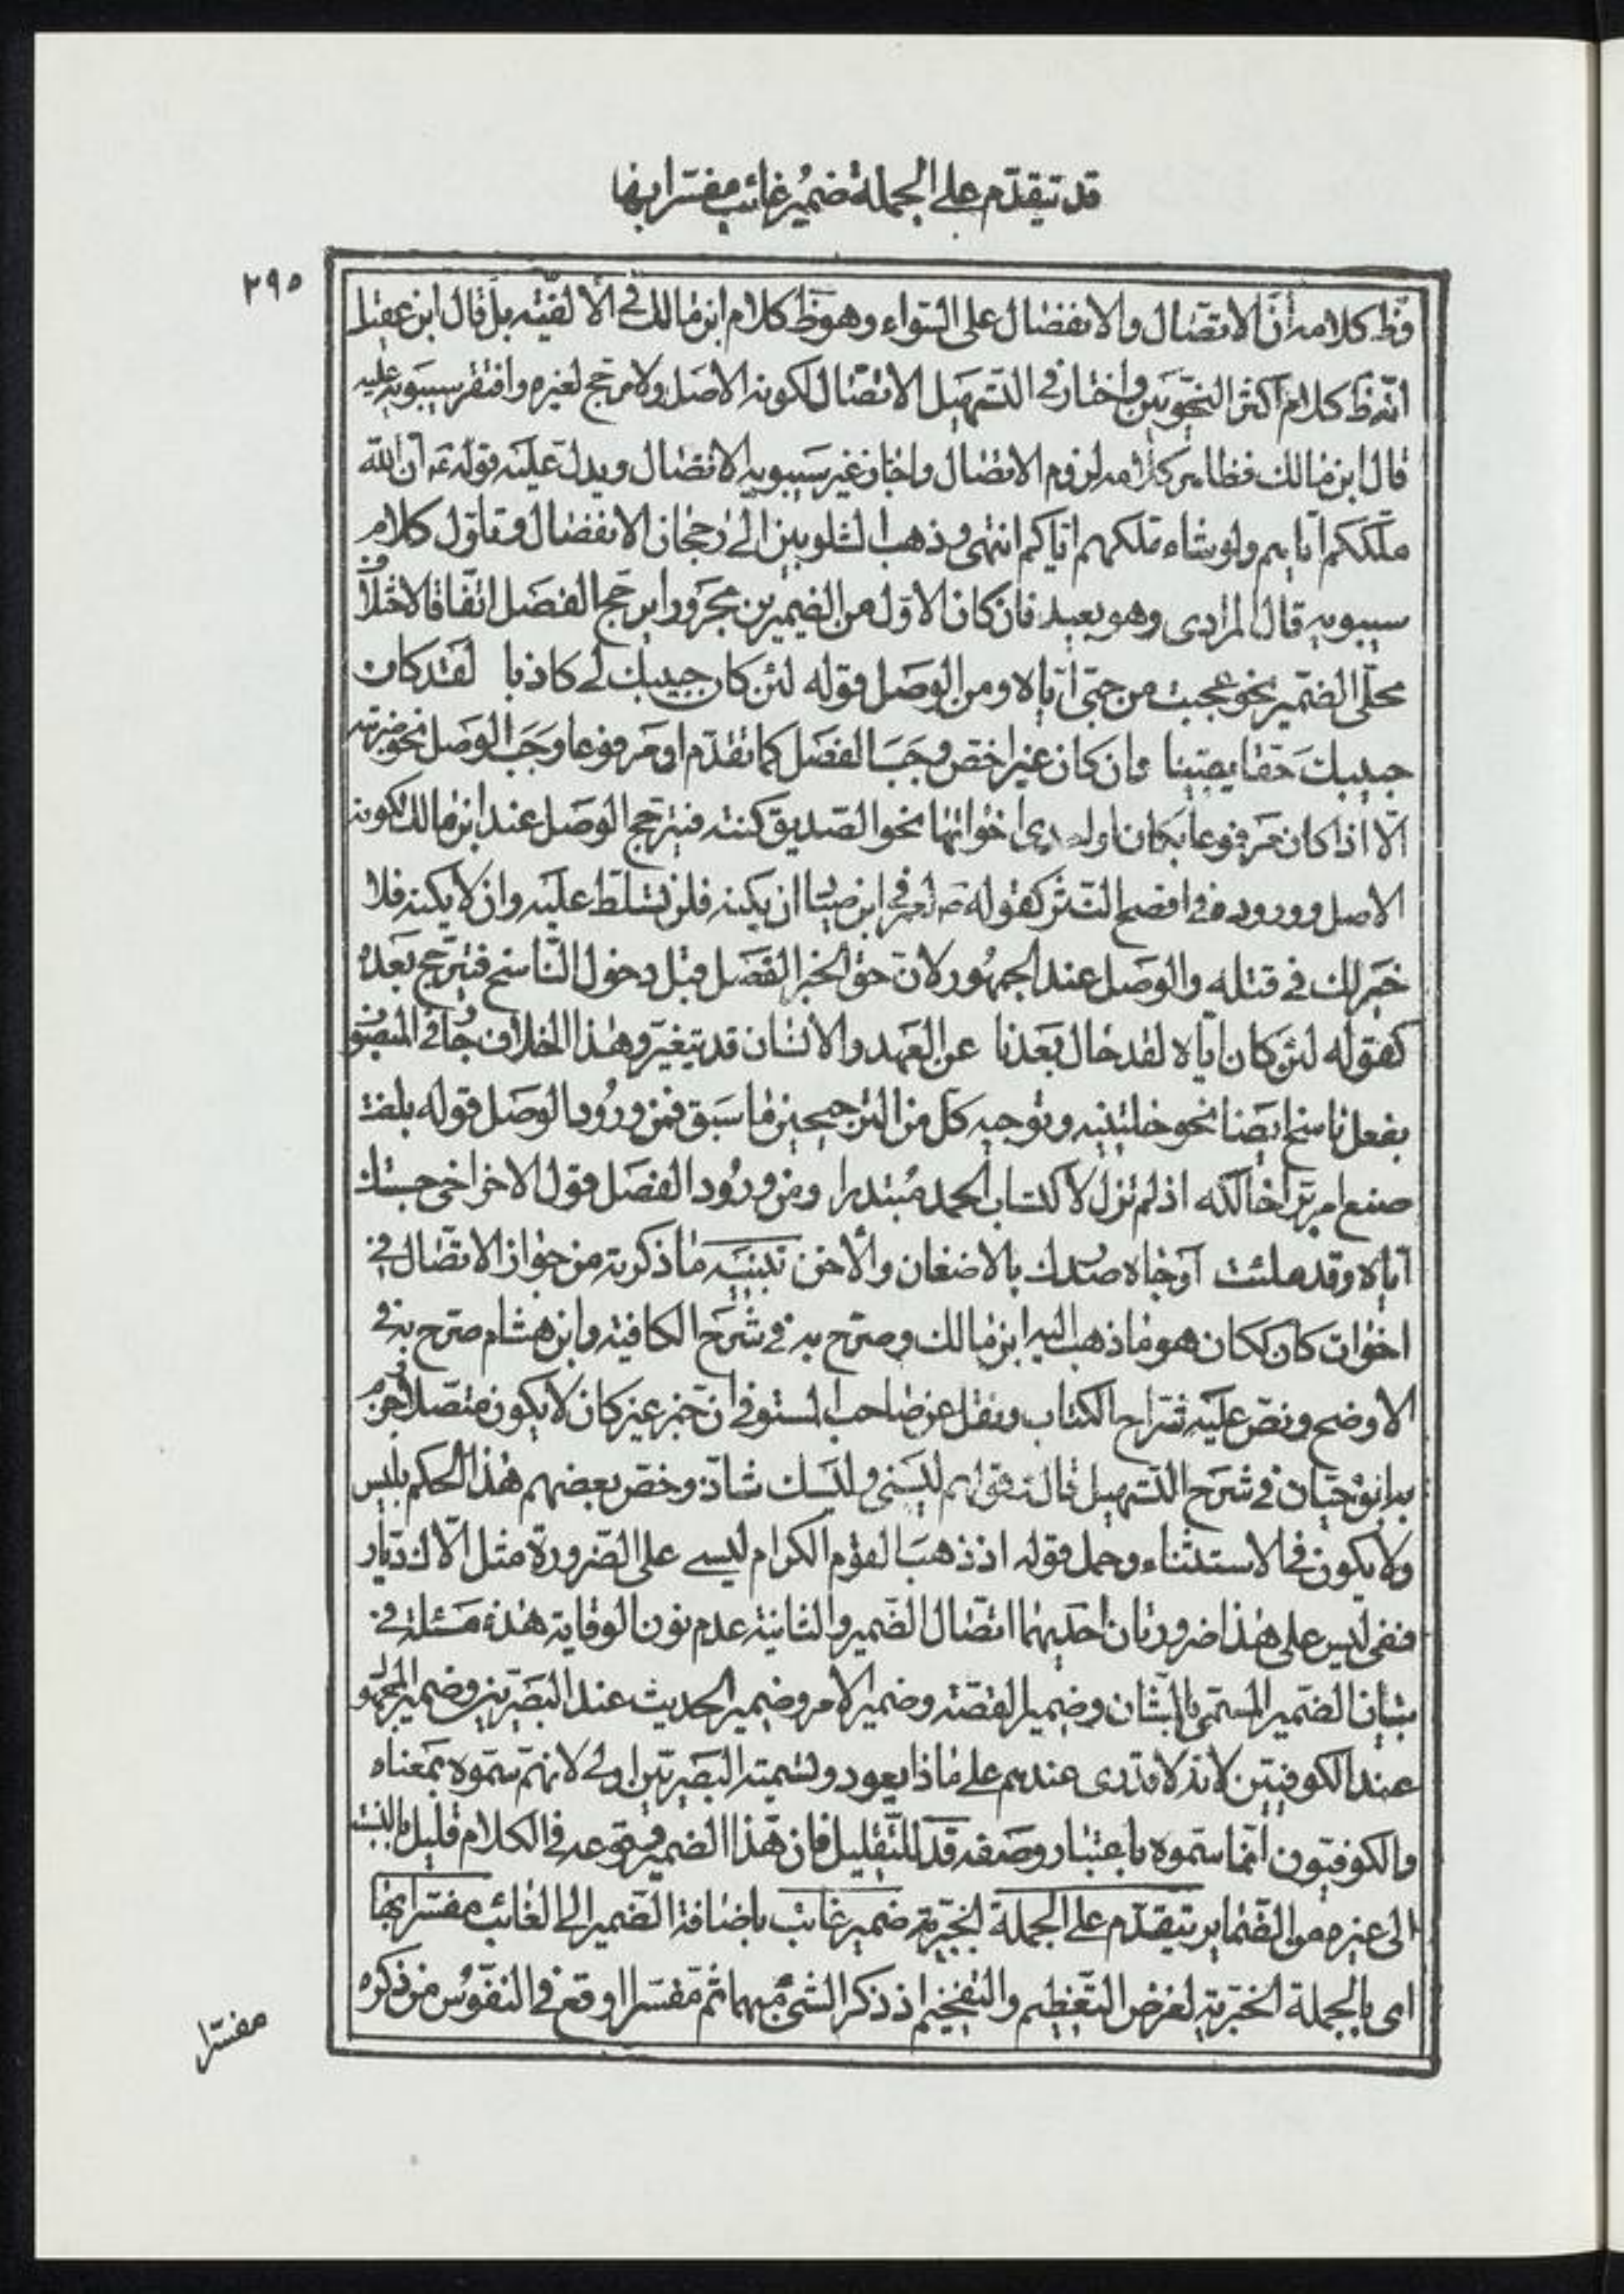 قد تیقدّم على الجملة ضمير غائب مفسّرا بها
۲۹۵
فظ كلامه أنّ الاتصال والانفصال على السّواء وهو ظ كلام ابن مالك في الألفيّة بل قال ابن عقيل
انّه ظ كلام اكثر النحويين واختار في التسهيل الاتصال لكونه الاصل ولا مرجّح لغيره وافتقر سيبويه عليه
قال ابن مالك فظاهر كلامه لزوم الاتصال واجاز غير سيبويه الانفصال ويدلّ عليه قوله عم ان الله
ملّككم اياهم ولو شاء ملكهم اياكم انتهى وذهب الشلوبين الى رجحان الانفصال وتاوّل كلام
سيبويه قال المرادى وهو بعيد فان كان الاوّل من الضميرين مجرورا يرجّح الفصل اتّفاقا لاختلاف
محلّى الضمير نحو عجبت من حبّى اياه ومن الوصل قوله لئن كان حبيبك لى كاذبا لقد كان
حبيبك حقّا يقينا وان كان غير اخصّ وجب الفصل كما تقدّم او مرفوعا وجب الوصل نحو ضربته
الّا اذا كان مرفوعا بكان او احدى اخواتها نحو الصديق كنته فيترجّح الوصل عند ابن مالك لكونه
الاصل ووروده في افصح النّثر كقوله ص لعمر في ابن صيّاد ان يكنه فلن تسلّط عليه وان لا يكنه فلا
خير لك في قتله والوصل عند الجمهور لان حقّ الخبر الفصل قبل دخول النّاسخ فيترجّح بعده
كقوله لئن كان ايّاه لقد حال بعدنا عن العهد والانسان قد يتغيّر وهذا الخلاف جار في المنصوب
بفعل ناسخ ايضا نحو خلتنيه وتوجيه كلّ من الترجيحين ما سبق فمن ورود الوصل قوله بلغت
صنع امرء برّ اخالكه اذ لم تزل لاكتساب الحمد مبتدرا ومن ورود الفصل قول الاخر اخى حسبتك
ايّاه وقد ملئت ارجاء صدرك بالاضغان والاحن تنبيه ما ذكرته من جواز الاتصال في
اخوات كان ككان هو ما ذهب اليه ابن مالك وصرّح به في شرح الكافية وابن هشام صرّح به في
الاوضح ونصّ عليه شرّاح الكتاب ونقل عن صاحب المستوفى ان خبر غير كان لا يكون متصلا وجزم
به ابو حيّان في شرح التسهيل قال فقولهم ليسنى وليسك شاذّ وخصّ بعضهم هذا الحكم بليس
ولا يكون في الاستثناء وحمل قوله اذ ذهب القوم الكرام ليسى على الضرورة مثل الّاك ديّار
ففى ليس على هذا ضرورتان احديهما اتّصال الضمير والثانية عدم نون الوقاية هذه مسئلة في
بيان الضمير المسمّى بالشان وضمير القصّة وضمير الامر وضمير الحديث عند البصريين وضمير المجهول
عند الكوفيّين لانّه لا يدرى عندهم على ماذا يعود وتسمية البصريّين اولى لانهم سمّوه بمعناه
والكوفيّون انّما سمّوه باعتبار وصفه قد للتقليل فان هذا الضمير وقوعه في الكلام قليل بالنسبة
الى غيره من الضماير يتقدّم على الجملة الخبريّة ضمير غائب باضافة الضمير الى الغائب مفسّرا بها
اى بالجملة الخبريّة لغرض التعظيم والتفخيم اذ ذكر الشئ مبهما ثم مفسّرا اوقع في النفوس من ذكره
مفسّرا